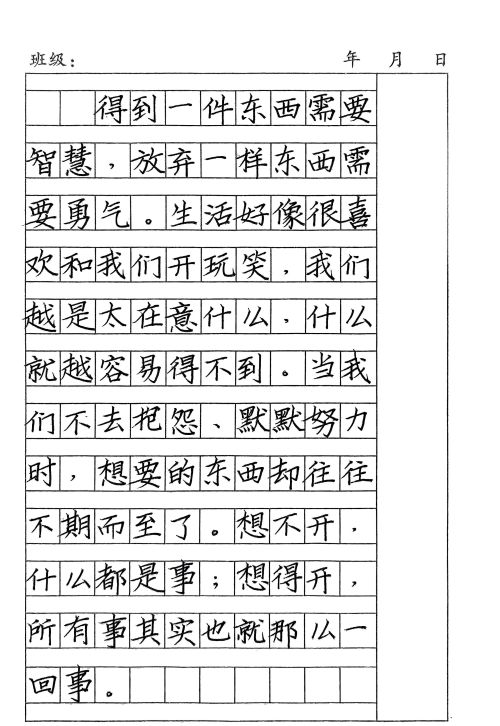 班级： 年 月 日
得到一件东西需要
智慧，放弃一样东西需
要勇气。生活好像很喜
欢和我们开玩笑，我们
越是太在意什么，什么
就越容易得不到。当我
们不去抱怨、默默努力
时，想要的东西却往往
不期而至了。想不开，
什么都是事；想得开，
所有事其实也就那么一
回事。